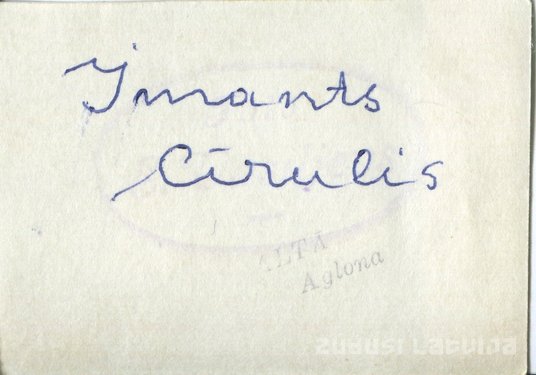 Imants
Cīrulis
ALTA
Aglona
Zudusi Latvija